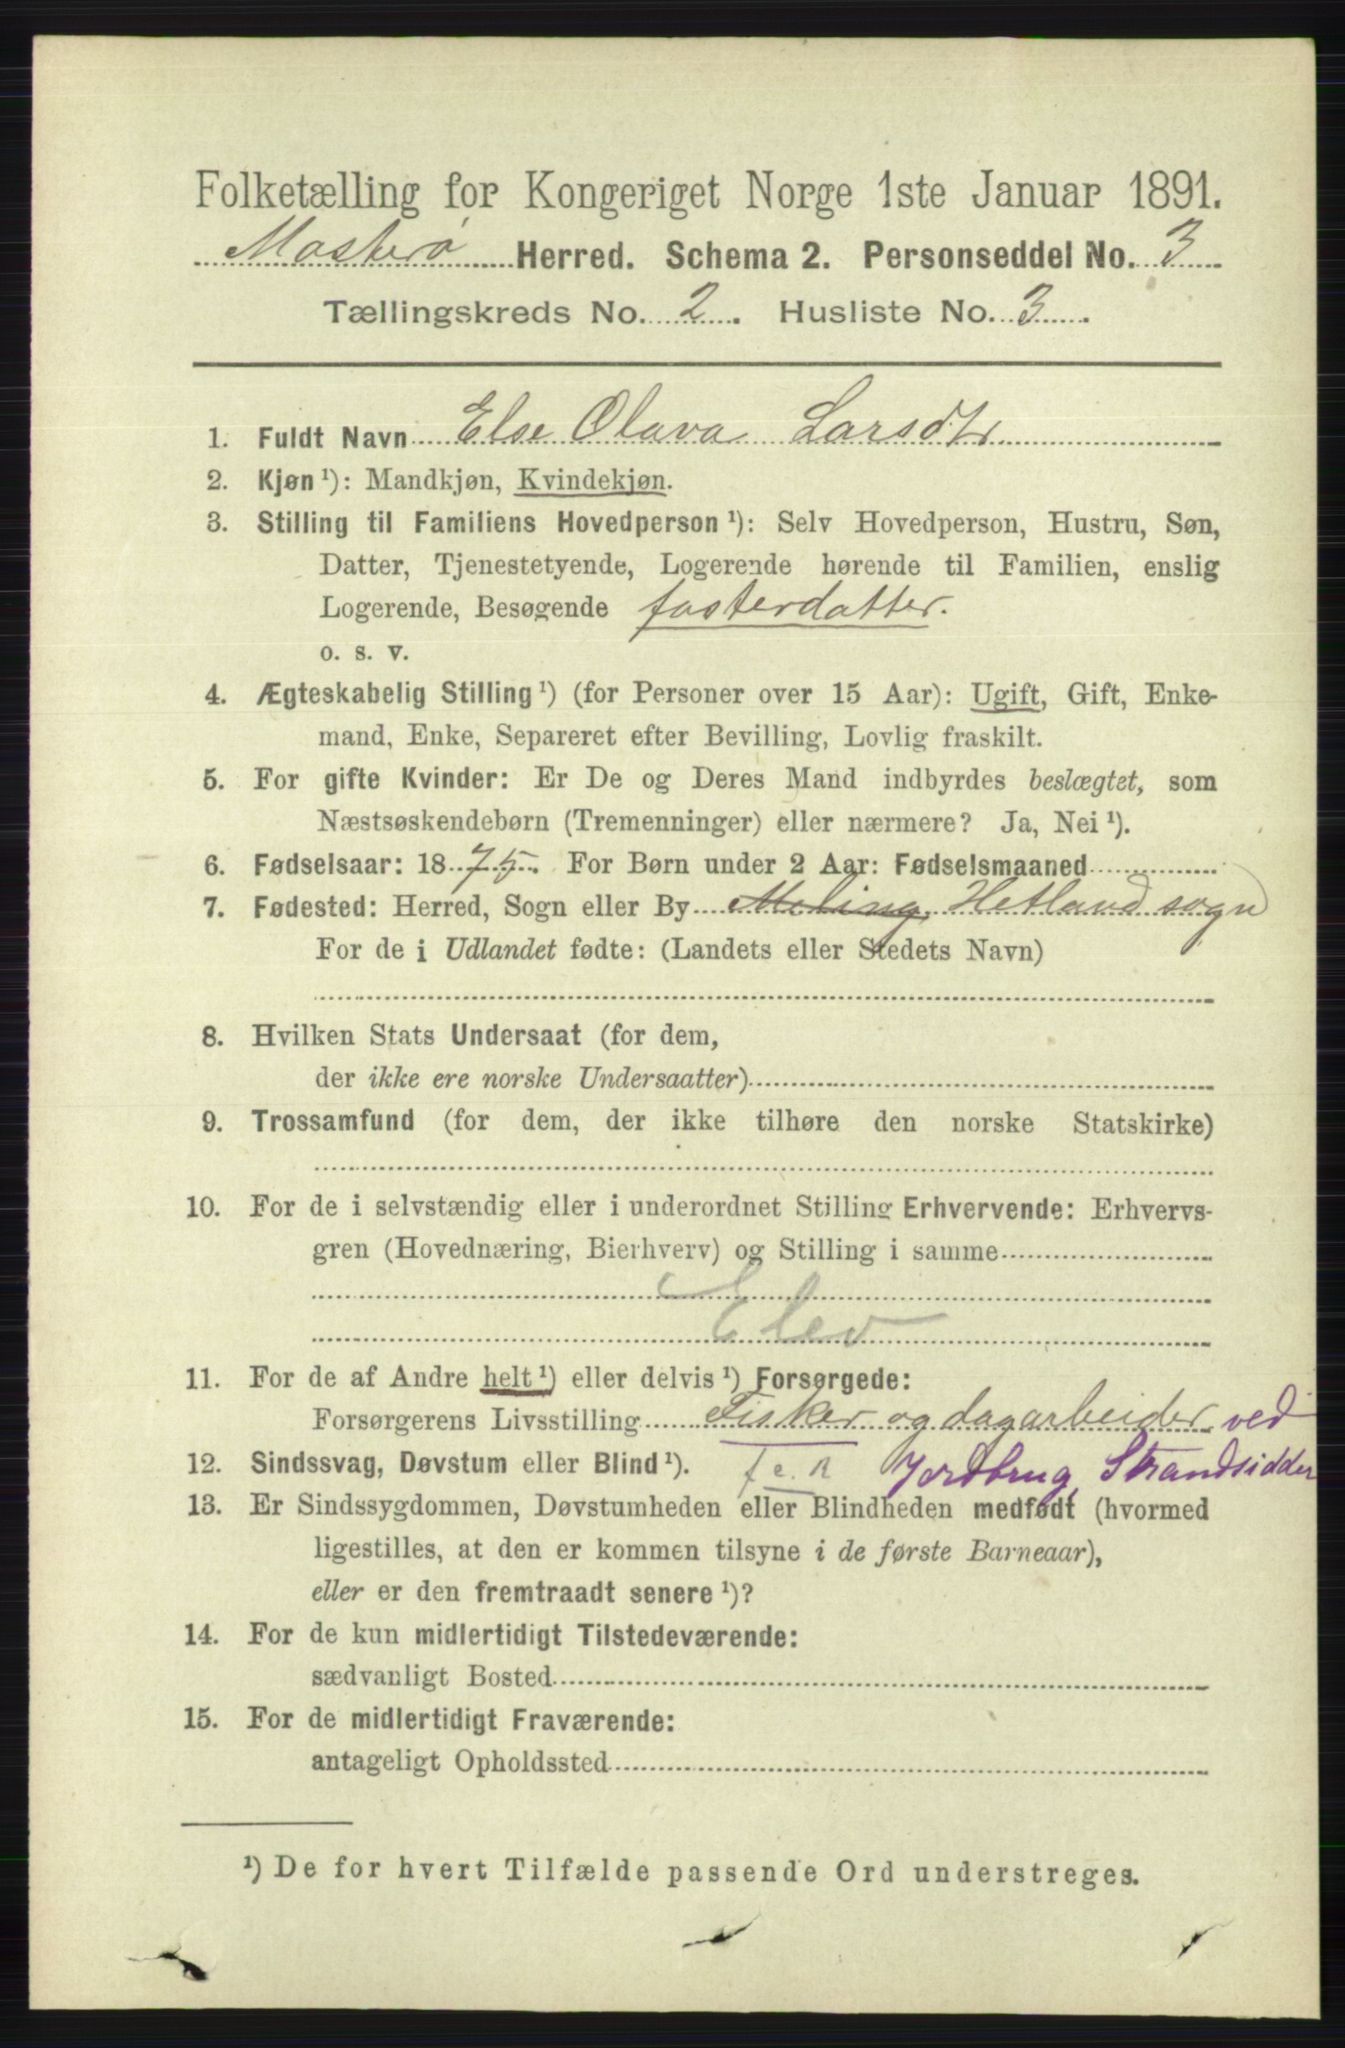 Folketælling for Kongeriget Norge 1ste Januar 1891.
Mosterø Herred. Schema 2. Personseddel No. 3
Tællingskreds No. 2. Husliste No. 3.
1. Fuldt Navn Else Olava Larsdtr
2. Kjøn ¹): Mandkjøn, Kvindekjøn.
3. Stilling til Familiens Hovedperson ¹): Selv Hovedperson, Hustru, Søn,
Datter, Tjenestetyende, Logerende hørende til Familien, enslig
Logerende, Besøgende fosterdatter.
o. s. v.
4. Ægteskabelig Stilling ¹) (for Personer over 15 Aar): Ugift, Gift, Enke-
mand, Enke, Separeret efter Bevilling, Lovlig fraskilt.
5. For gifte Kvinder: Er De og Deres Mand indbyrdes beslægtet, som
Næstsøskendebørn (Tremenninger) eller nærmere? Ja, Nei ¹).
6. Fødselsaar: 1875. For Børn under 2 Aar: Fødselsmaaned
7. Fødested: Herred, Sogn eller By Meling, Hetland sogn
For de i Udlandet fødte: (Landets eller Stedets Navn)
8. Hvilken Stats Undersaat (for dem,
der ikke ere norske Undersaatter)
9. Trossamfund (for dem, der ikke tilhøre den norske Statskirke)
10. For de i selvstændig eller i underordnet Stilling Erhvervende: Erhvervs-
gren (Hovednæring, Bierhverv) og Stilling i samme
Elev
11. For de af Andre helt ¹) eller delvis ¹) Forsørgede:
Forsørgerens Livsstilling Fisker og dagarbeider ved
12. Sindssvag, Døvstum eller Blind ¹). Jordbrug, Strandsidder
13. Er Sindssygdommen, Døvstumheden eller Blindheden medfødt (hvormed
ligestilles, at den er kommen tilsyne i de første Barneaar),
eller er den fremtraadt senere ¹)?
14. For de kun midlertidigt Tilstedeværende:
sædvanligt Bosted
15. For de midlertidigt Fraværende:
antageligt Opholdssted
¹) De for hvert Tilfælde passende Ord understreges.